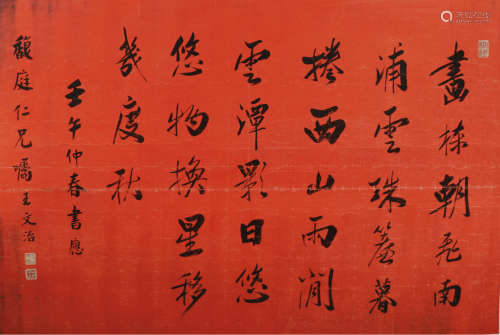 畫棟朝飛南
浦雲珠簾暮
捲西山雨閒
雲潭影日悠
悠物換星移
幾度秋
壬午仲春書應
馥庭仁兄囑 王文治